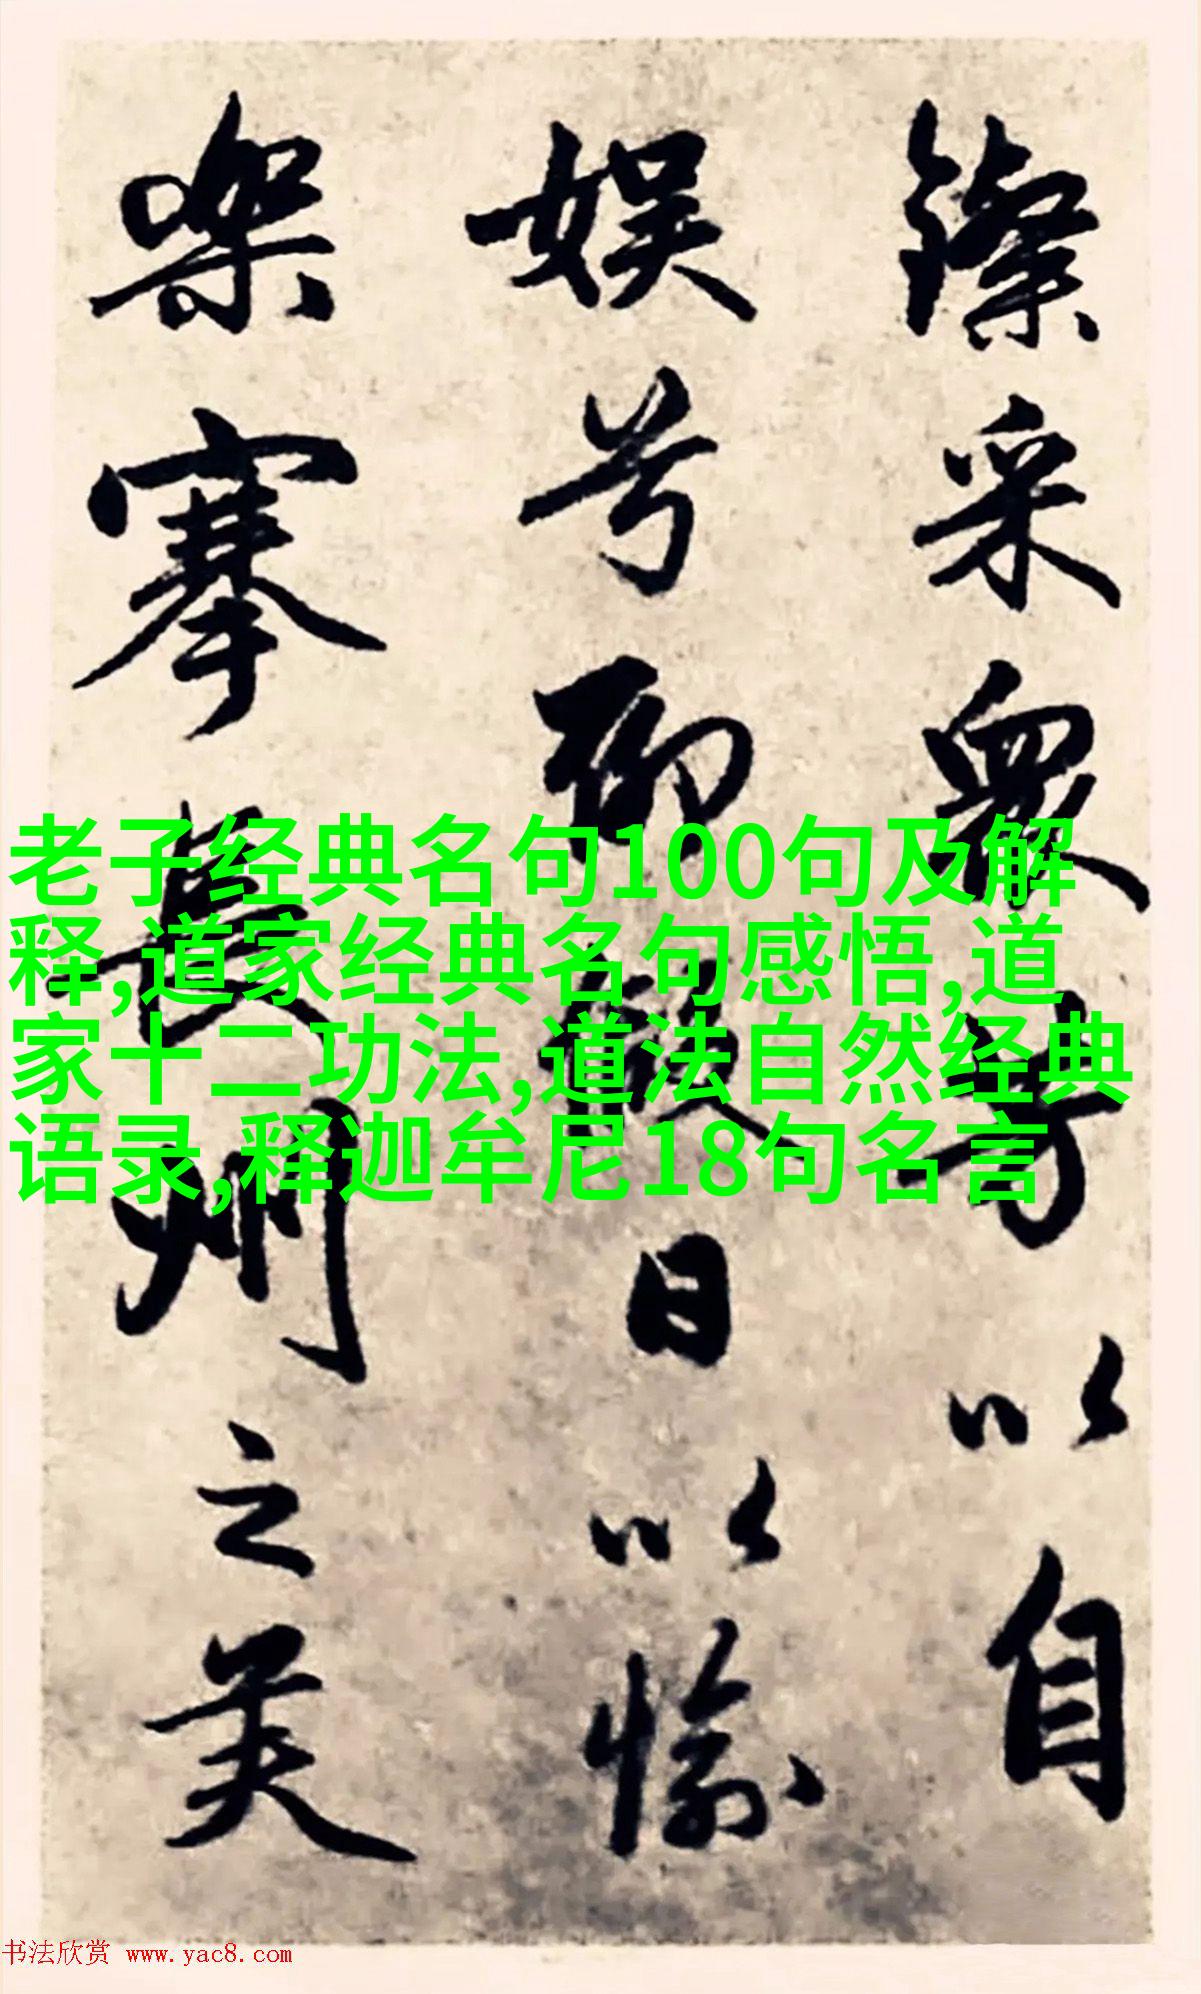 鏶采眾芳以自
娱兮聊假日以愉
樂搴長洲之芙
老子经典名句100句及解
释,道家经典名句感悟,道
家十二功法,道法自然经典
语录,释迦牟尼18句名言
书法欣赏 www.yac8.com